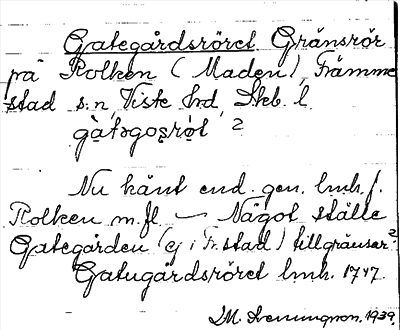 Gategårdsröret Gränsrör
på Rolken (Maden), Främme-
stad s:n, Viste hd, Skb. l.
Nu känt end. gen. lmh. f.
Rolken m.fl. — Något ställe
Gategården (ej i Fr.stad) tillgränsar?
Gatugårdsröret lmh. 1747
M. Svenungson. 1939.